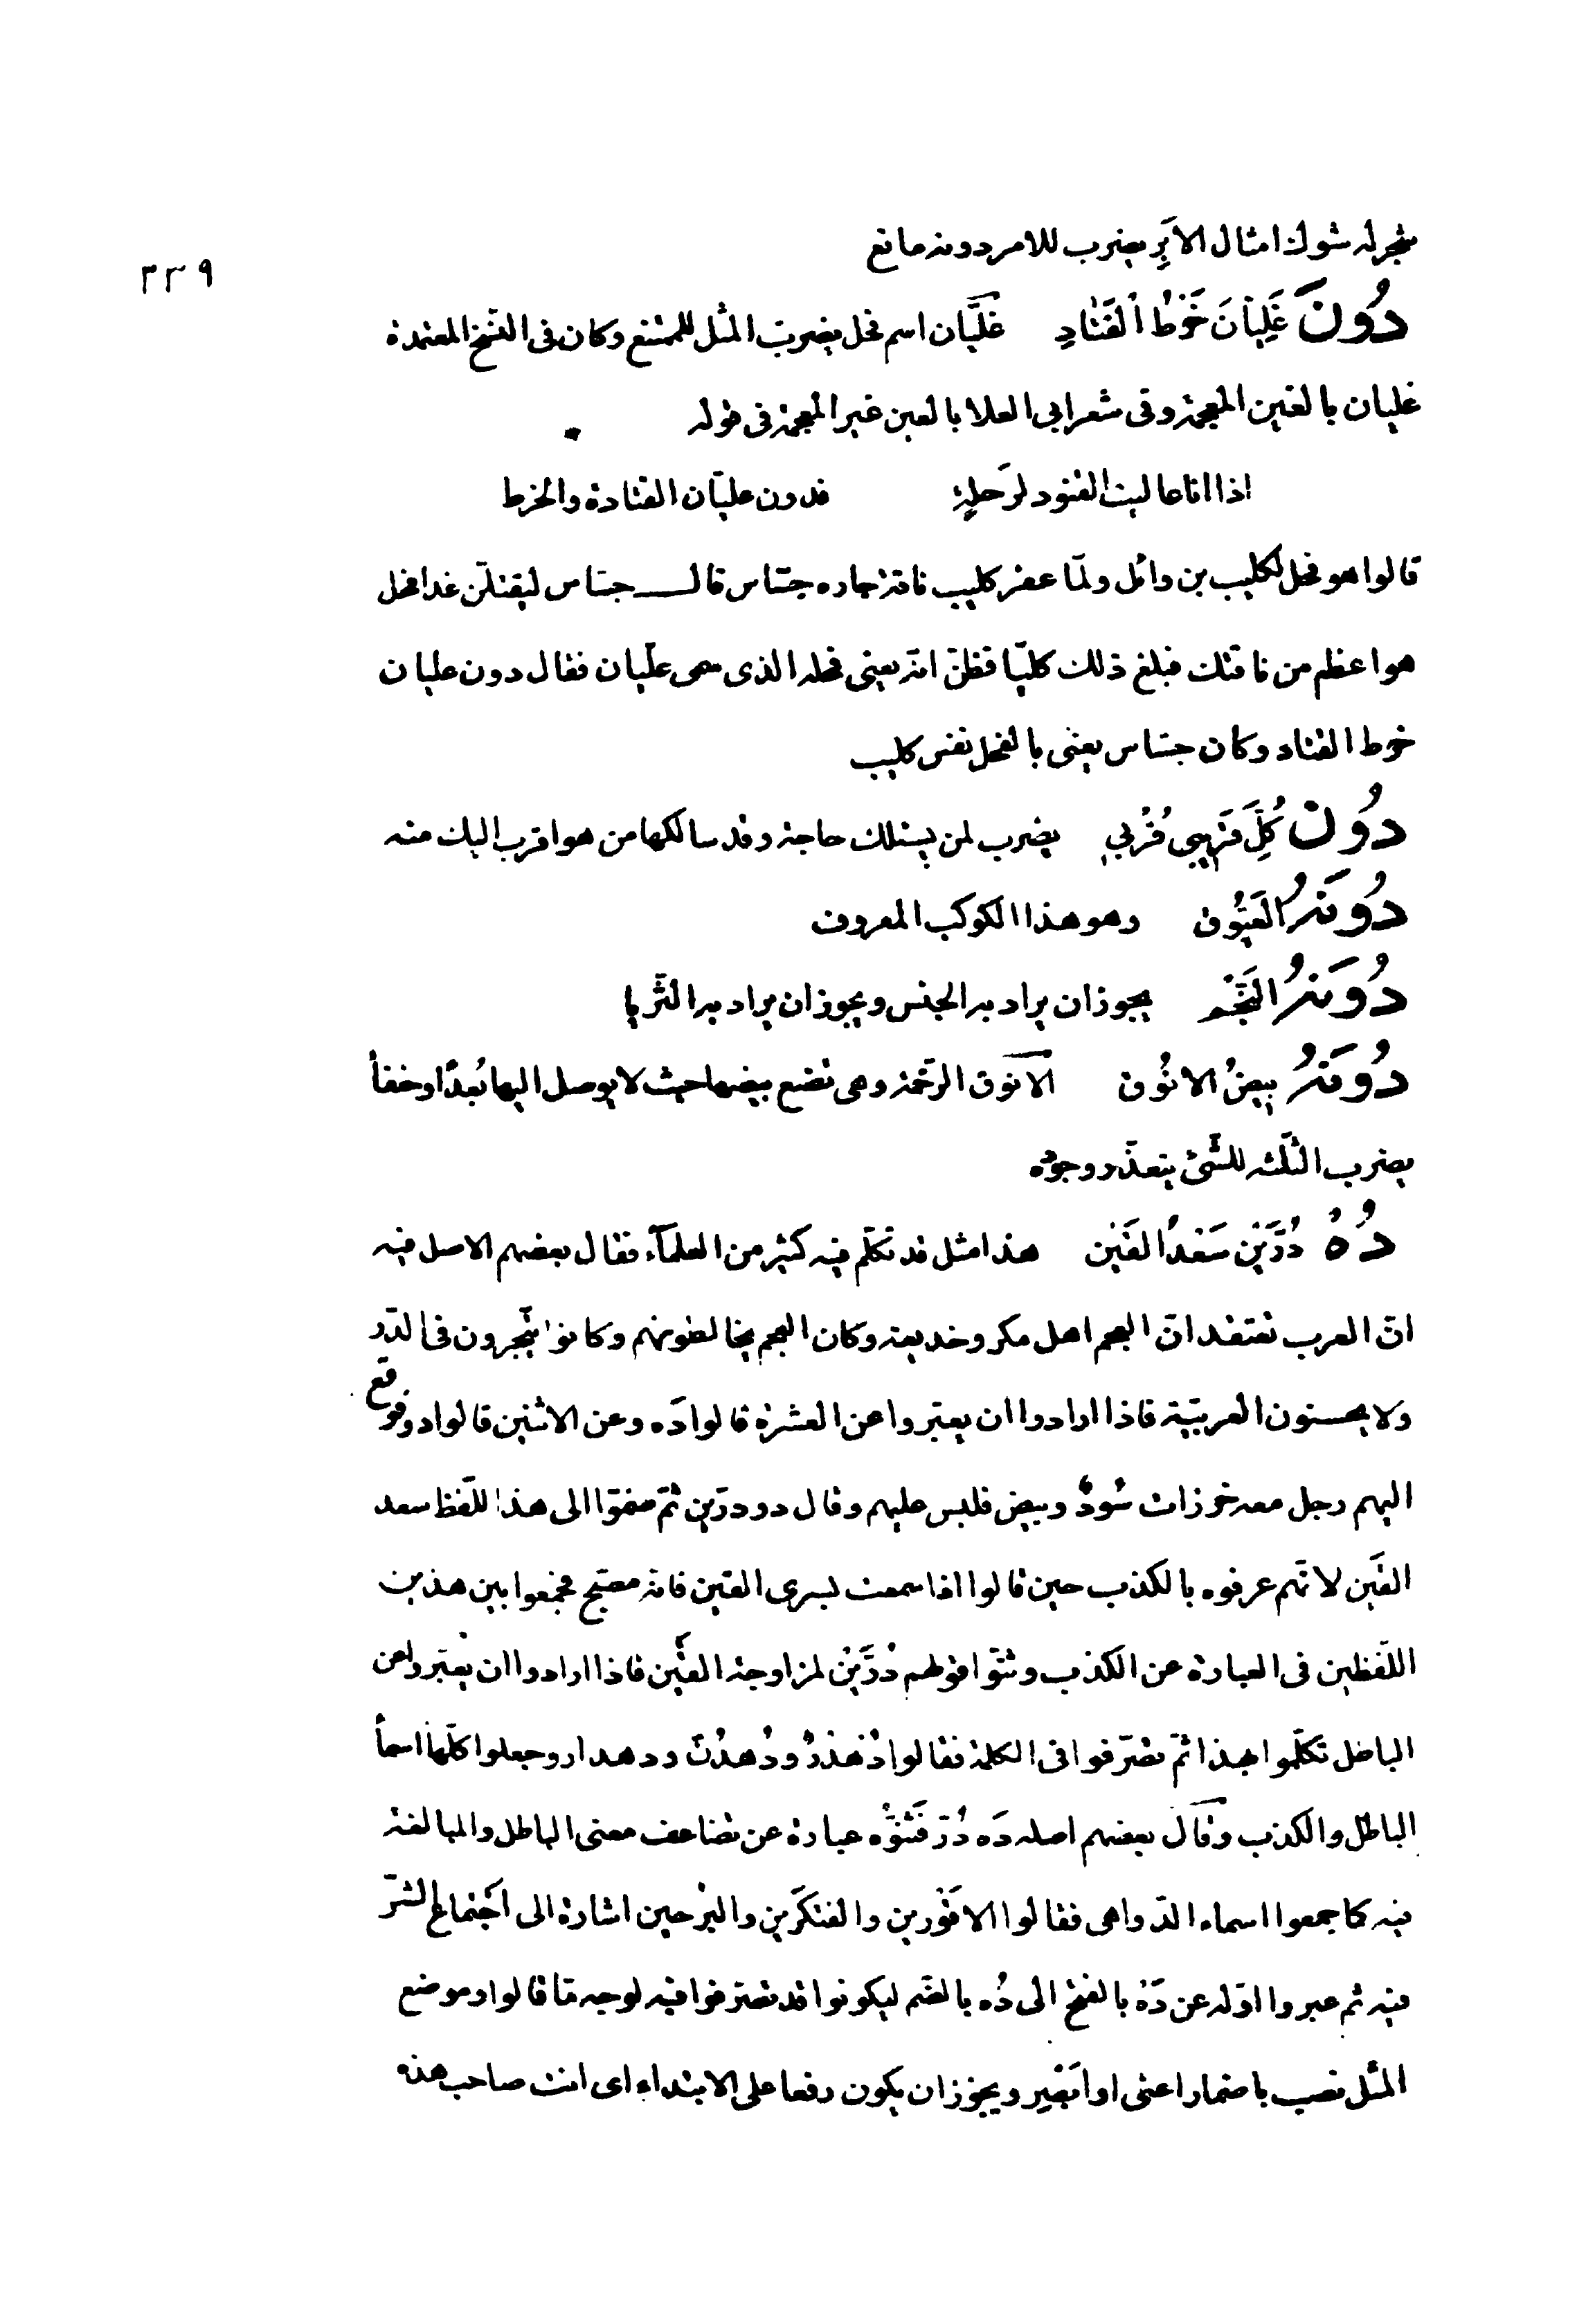 شجر له شوك امثال الاَبِر يضرب للامر دونه مانع
٢٣٩
دُونَ غَلِيانَ خَرْطُ القَتادِ غليّان اسم فحل يضرب المثل للممتنع وكان فى النسخ المعتمدة
غليان بالغين المعجمة وفى شعر ابى العلا بالعين غير المعجمة فى قوله
اذا انا عاليت القتود لرَحلةٍ فدون عليّان القتادة والخرط
قالوا هو فحل لكليب بن وائل ولمّا عقر كليب ناقة جاره جسّاس قال جسّاس ليقتلنّ غدا فحل
هو اعظم من ناقتك فبلغ ذلك كليبًا فظنّ انّه يعنى فحله الذى يسمى عليّان فقال دون عليان
خرط القتاد وكان جسّاس يعنى بالفحل نفس كليب
دُونَ كُلِّ قَرِيبي قُرْبي يضرب لمن يسئلك حاجة وقد سالكها من هو اقرب اليك منه
دُونَهُ العَيُّوق وهو هذا الكوكب المعروف
دُونَهُ النَّجْم يجوز ان يراد به الجنس ويجوز ان يراد به الثّريا
دُونَهُ بيضُ الانُوق الانوق الرّخمة وهى تضع بيضها حيث لا يوصل اليها بُعدًا وخفأ
يضرب الثلثه للشّئ يتعذّر وجوده
دُهْ دُرَّيْن سَعْدُ القَيْن هذا مثل قد تكلّم فيه كثير من العلمآء فقال بعضهم الاصل فيه
انّ العرب تعتقد انّ العجم اهل مكر وخديعة وكان العجم يخالطونهم وكانوا يتّجرون فى الدّر
ولا يحسنون العربيّة فاذا ارادوا ان يعبّروا عن العشرة قالوا دَه وعن الاثنين قالوا دو فوقع
اليهم رجل معه خرزات سُودٌ وبيض فلبس عليهم وقال دو درّين ثمّ ضمّوا الى هذا اللّفظ سعد
القَين لانّهم عرفوه بالكذب حين قالوا اذا سمعت بسرى القين فانه مصبّح فجمعوا بين هذين
اللّفظين فى العبارة عن الكذب وثنّوا قولهم دُرَّيْن لمزاوجة القَيْن فاذا ارادوا ان يُعبّروا عن
الباطل تكلّموا بهذا ثمّ تصرّفوا فى الكلمة فقالوا دُهْدُرٌّ ودُهدُنّ ودهدار وجعلوا كلّها اسمأ
الباطل والكذب وقال بعضهم اصله دَه دُرّ فَثنّوْه عبارة عن تضاعف معنى الباطل والمبالغة
فيه كما جمعوا اسماء الدّواهى فقالوا الاقْوَرين والفتكَرين والبُرَحين اشارة الى اجتماع الشرّ
فيه ثم عبروا اوّله عن دَهْ بالفتح الى دُه بالضّم ليكونوا قد تصرّفوا فيه لوجه مّا قالوا وموضع
المثل نصب باضمار اعنى او ابْصِر ويجوز ان يكون رفعا على الابتداء اى انت صاحب هذه